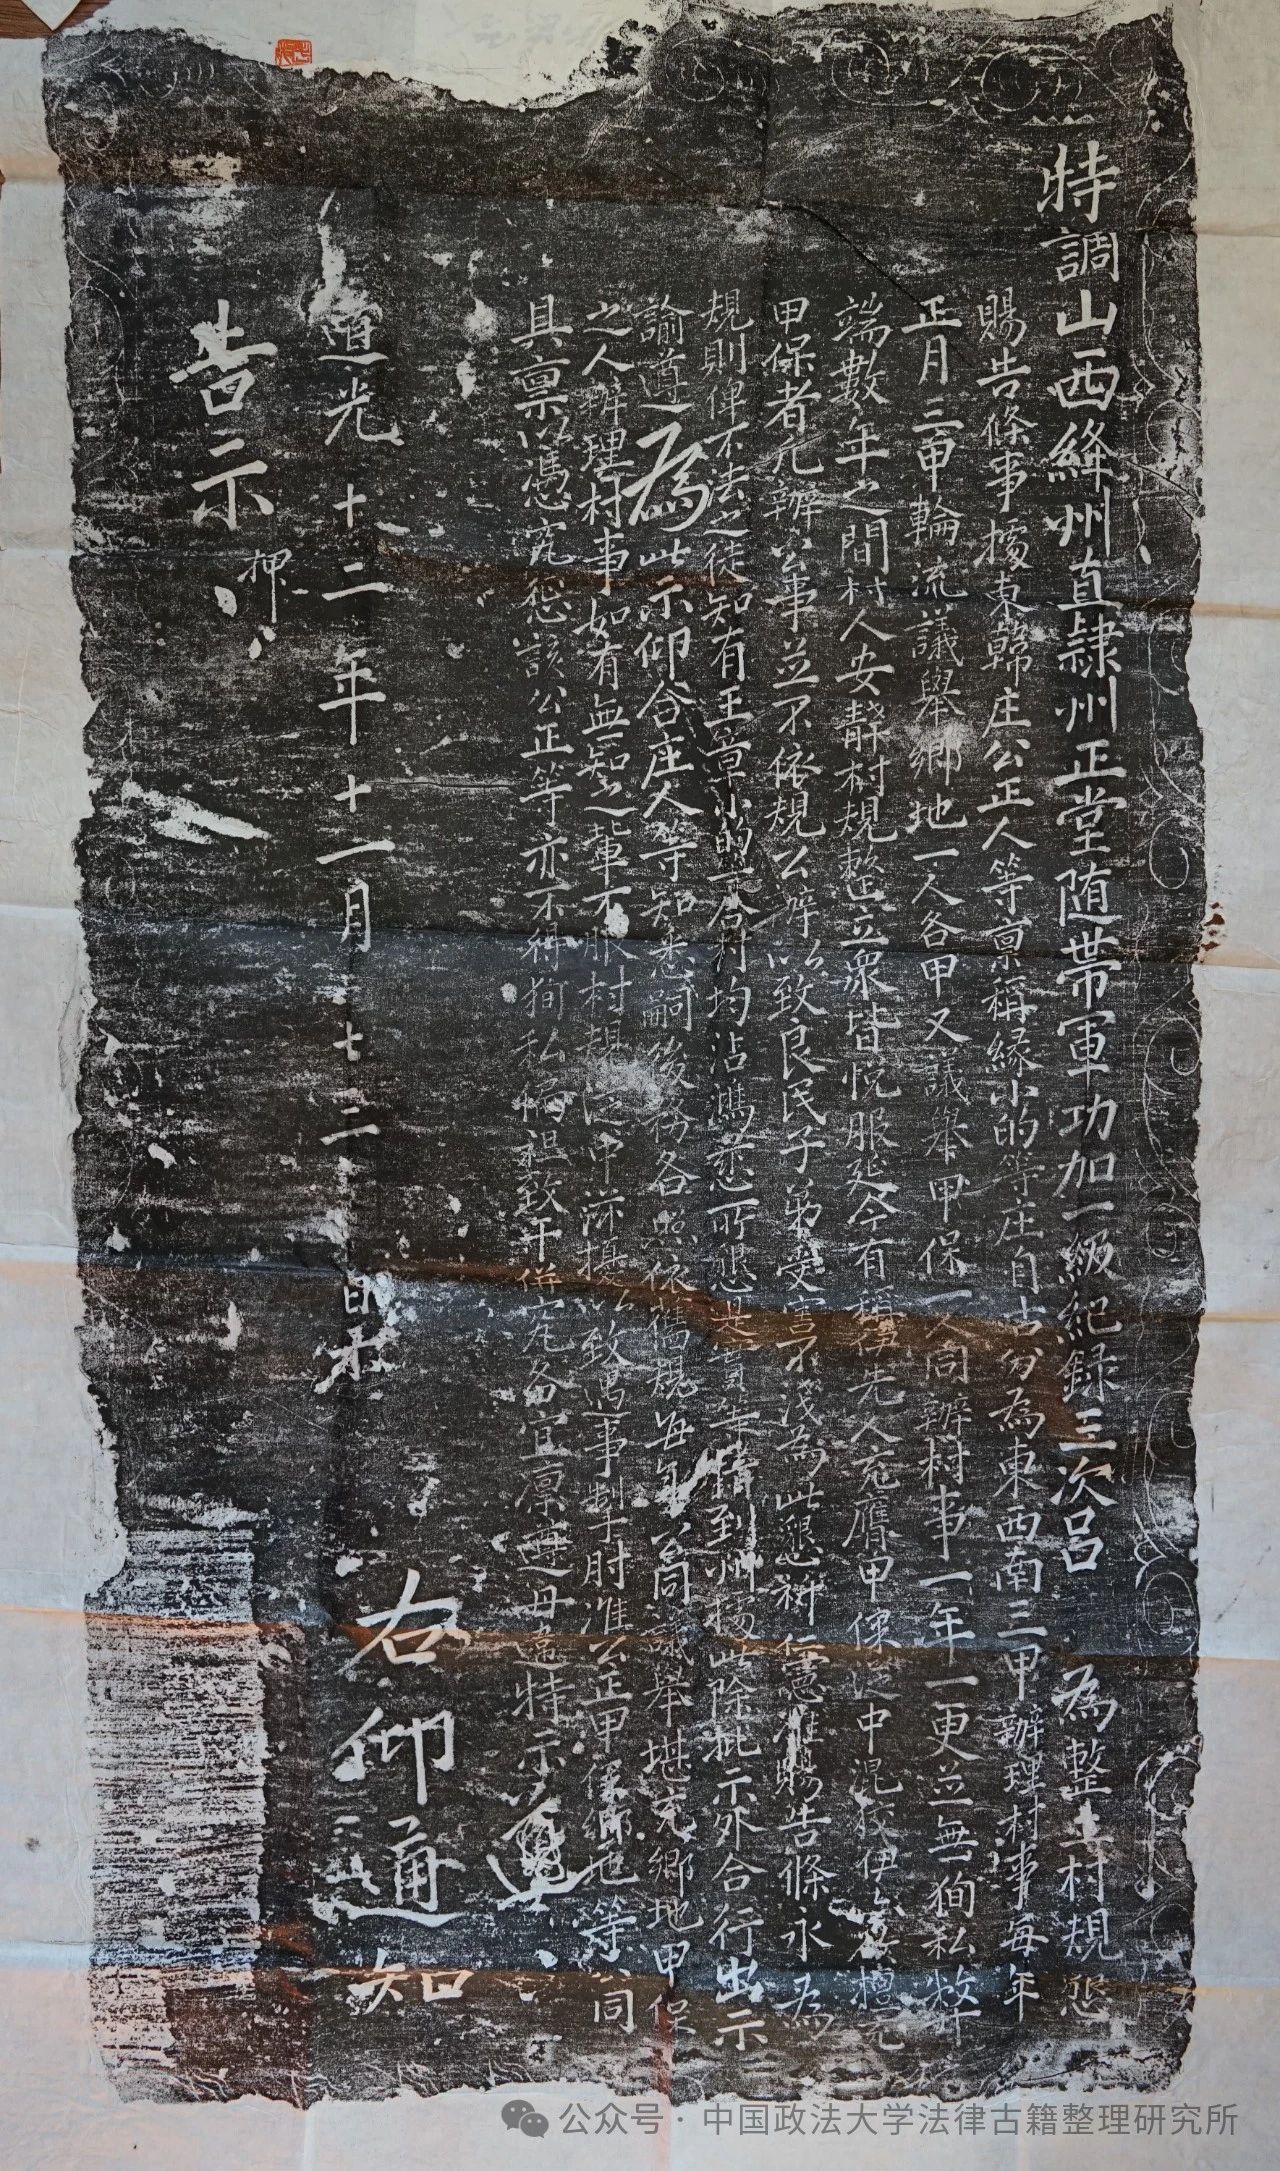 特調山西絳州直隸州正堂随帶軍功加一級紀録三次吕　為整立村規懇
賜告條事據東韓庄公正人等禀稱緣小的等庄自古分為東西南三甲辦理村事每年
正月三甲輪流議舉鄉地一人各甲又議舉甲保一人同辦村事一年一更並無狥私弊
端數年之間村人安靜村規整立衆皆悦服延今有稱伊先人充膺甲保
甲保者凡辦公事並不依規公辦以致良民子弟受害不淺為此懇祈仁憲准賜告條永為
規則俾不法之徒知有王章小的合村均沾鴻慈所懇是實等情到州據此除批示外合行出示
諭遵為此示仰合庄人等知悉嗣後務各照依舊規每年公同議舉堪充鄉地甲保
之人辦理村事如有無知之輩不服村規從中滋擾以致遇事掣肘准公正甲保鄉地等公同
具禀以憑究懲該公正等亦不得狥私偏袒致干併究各宜凛遵毋違特示遵
右仰通知
道光十二年十一月二十七日
告示
押
公众号·中国政法大学法律古籍整理研究所